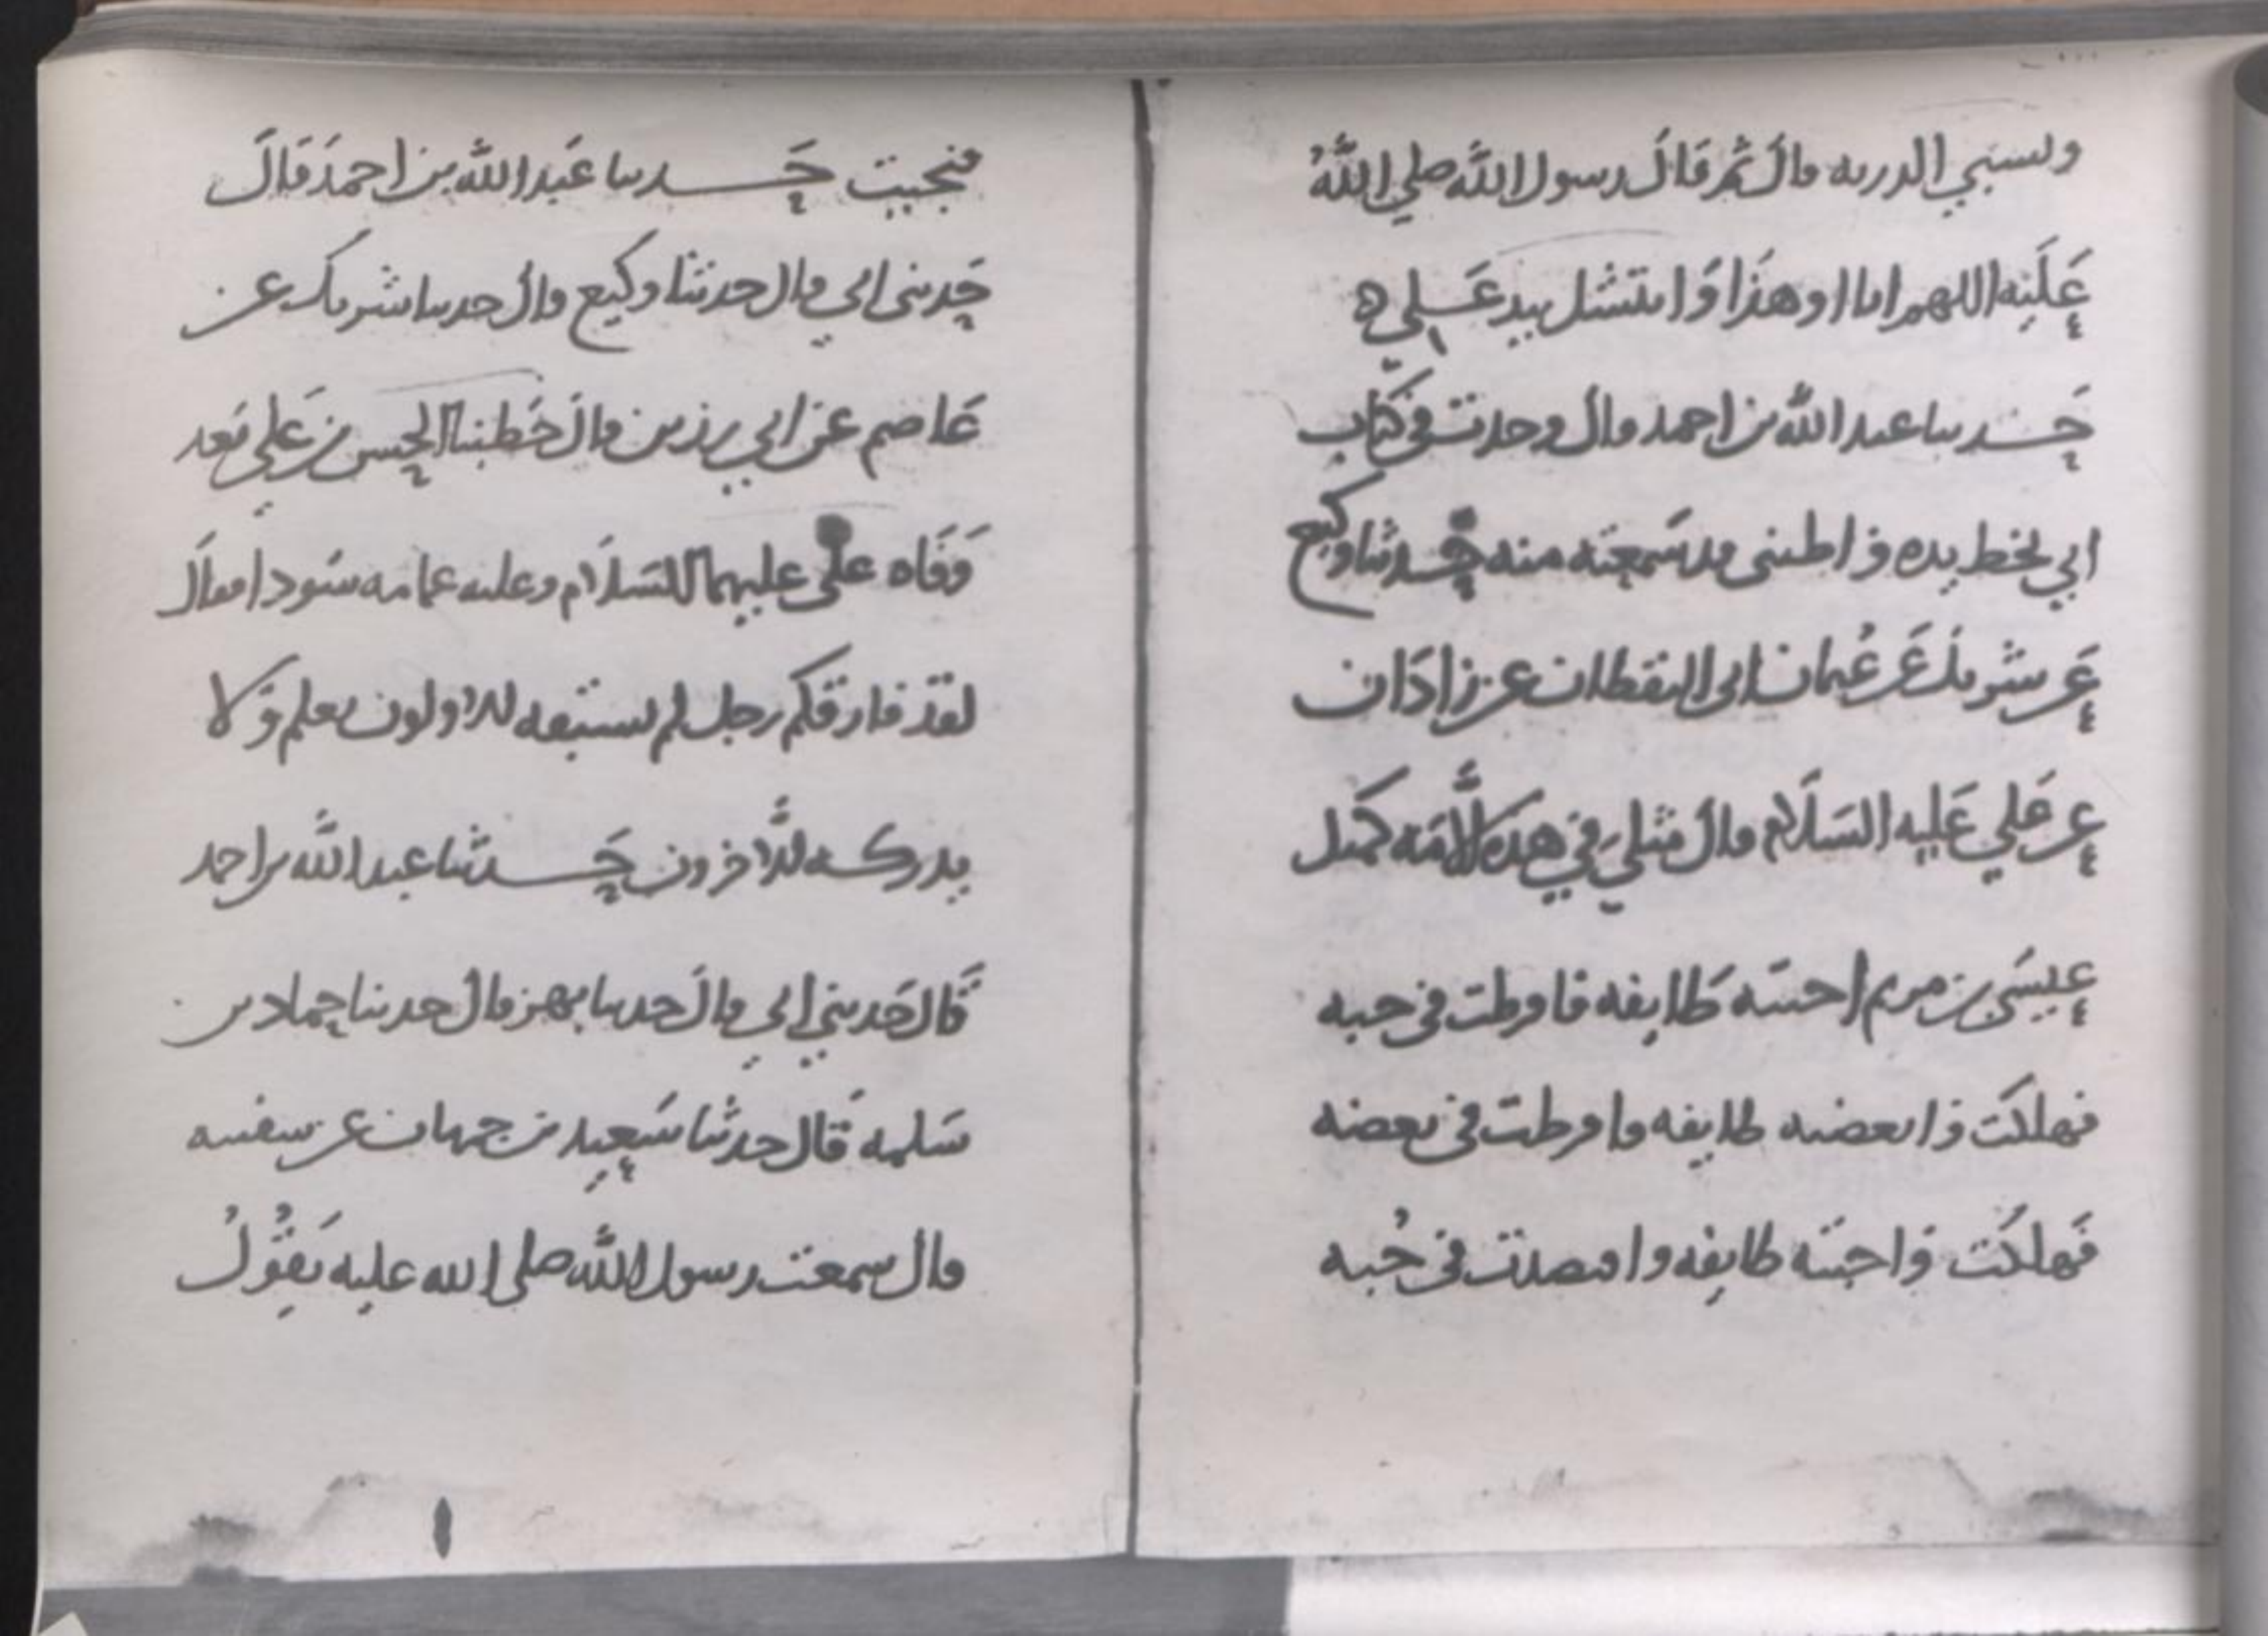 ولسبي الدريه قال ثم قال رسول الله صلي الله
عليه اللهم انا او هذا وانتشل بيد علي ه
حدثنا عبد الله بن احمد قال وجدت في كتاب
ابي بخط يده واظنني قد سمعته منه حدثنا وكيع
عن شريك عن عثمان ابي اليقظان عن زاذان
عن علي عليه السلام قال مثلي في هذه الامه كمثل
عيسى بن مريم احبته طايفه فافرطت في حبه
فهلكت وابغضته طايفه وافرطت في بغضه
فهلكت واحبته طايفه واقتصدت في حبه
فنجيت حدثنا عبد الله بن احمد قال
حدثني ابي قال حدثنا وكيع قال حدثنا شريك عن
عاصم عن ابي رزين قال خطبنا الحسن بن علي بعد
وفاه علي عليهما السلام وعليه عمامه سودا فقال
لقد فارقكم رجل لم يسبقه الاولون بعلم ولا
يدركه الاخرون حدثنا عبد الله بن احمد
قال حدثني ابي قال حدثنا بهز قال حدثنا حماد بن
سلمه قال حدثنا سعيد بن جمهان عن سفينه
قال سمعت رسول الله صلى الله عليه يقول